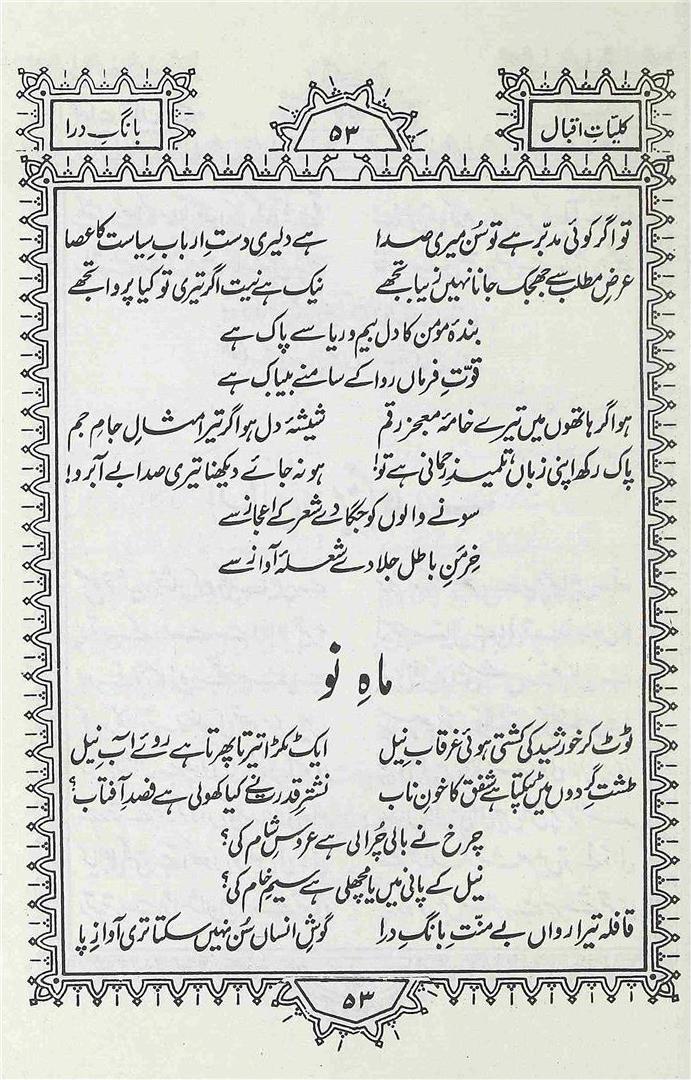 کلیاتِ اقبال ۵۳ بانگِ درا
تو اگر کوئی مدبّر ہے تو سُن میری صدا ہے دلیری دستِ اربابِ سیاست کا عصا
عرضِ مطلب سے جھجک جانا نہیں زیبا تجھے نیک ہے نیت اگر تیری تو کیا پروا تجھے
بندۂ مومن کا دل بیم و ریا سے پاک ہے
قوّتِ فرماں روا کے سامنے بیباک ہے
ہو اگر ہاتھوں میں تیرے خامۂ معجز رقم شیشۂ دل ہو اگر تیرا مثالِ جامِ جم
پاک رکھ اپنی زباں، تلمیذِ رحمانی ہے تو! ہو نہ جائے دیکھنا تیری صدا بے آبرو!
سونے والوں کو جگا دے شعر کے اعجاز سے
خرمنِ باطل جلا دے شعلۂ آواز سے
ماہِ نو
ٹوٹ کر خورشید کی کشتی ہوئی غرقابِ نیل ایک ٹکڑا تیرتا پھرتا ہے روئے آبِ نیل
طشتِ گردوں میں ٹپکتا ہے شفق کا خونِ ناب نشترِ قدرت نے کیا کھولی ہے فصدِ آفتاب؟
چرخ نے بالی چُرا لی ہے عروسِ شام کی؟
نیل کے پانی میں یا مچھلی ہے سیمِ خام کی؟
قافلہ تیرا رواں بے منّتِ بانگِ درا گوشِ انساں سُن نہیں سکتا تری آوازِ پا
۵۳